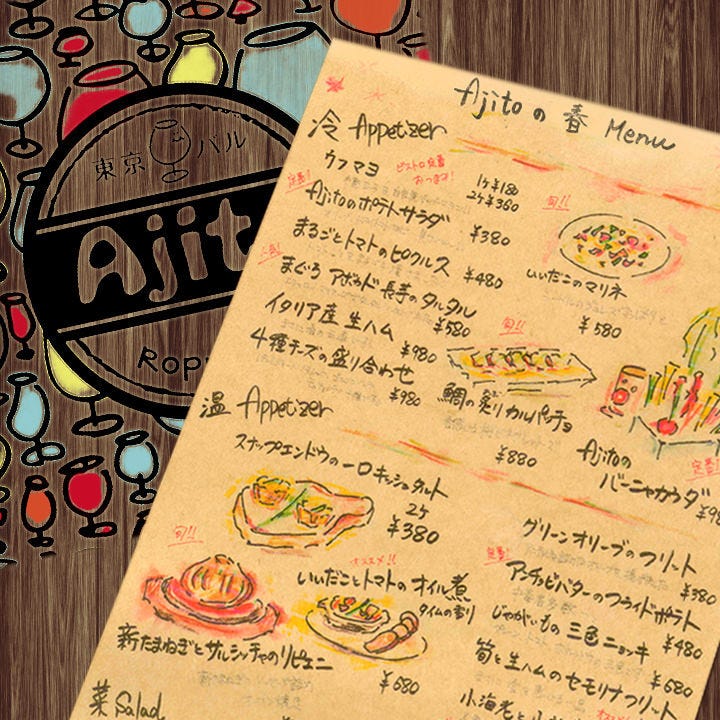 東京 バル
Ajit
Rop
Ajitoの春 Menu
冷 Appetizer
ウフマヨ
ビストロ定番
おつまみ!
1ケ¥180
2ケ¥360
定番!
Ajitoのポテトサラダ
¥380
まるごとトマトのピクルス
¥480
まぐろ アボカド 長芋のタルタル
¥580
イタリア産 生ハム
¥980
4種チーズの盛り合わせ
¥980
旬!!
いいだこのマリネ
¥580
旬!!
鯛の炙りカルパッチョ
¥880
Ajitoの
バーニャカウダ
定番!
温 Appetizer
スナップエンドウの一口キッシュタルト
2ケ
¥380
旬!!
新たまねぎとサルシッチャのリピエニ
オススメ!!
いいだことトマトのオイル煮
タイムの香り
¥680
グリーンオリーブのフリット
¥380
定番!
アンチョビバターのフライドポテト
¥480
じゃがいもの三色ニョッキ
¥680
筍と生ハムのセモリナフリット
¥680
菜 Salad